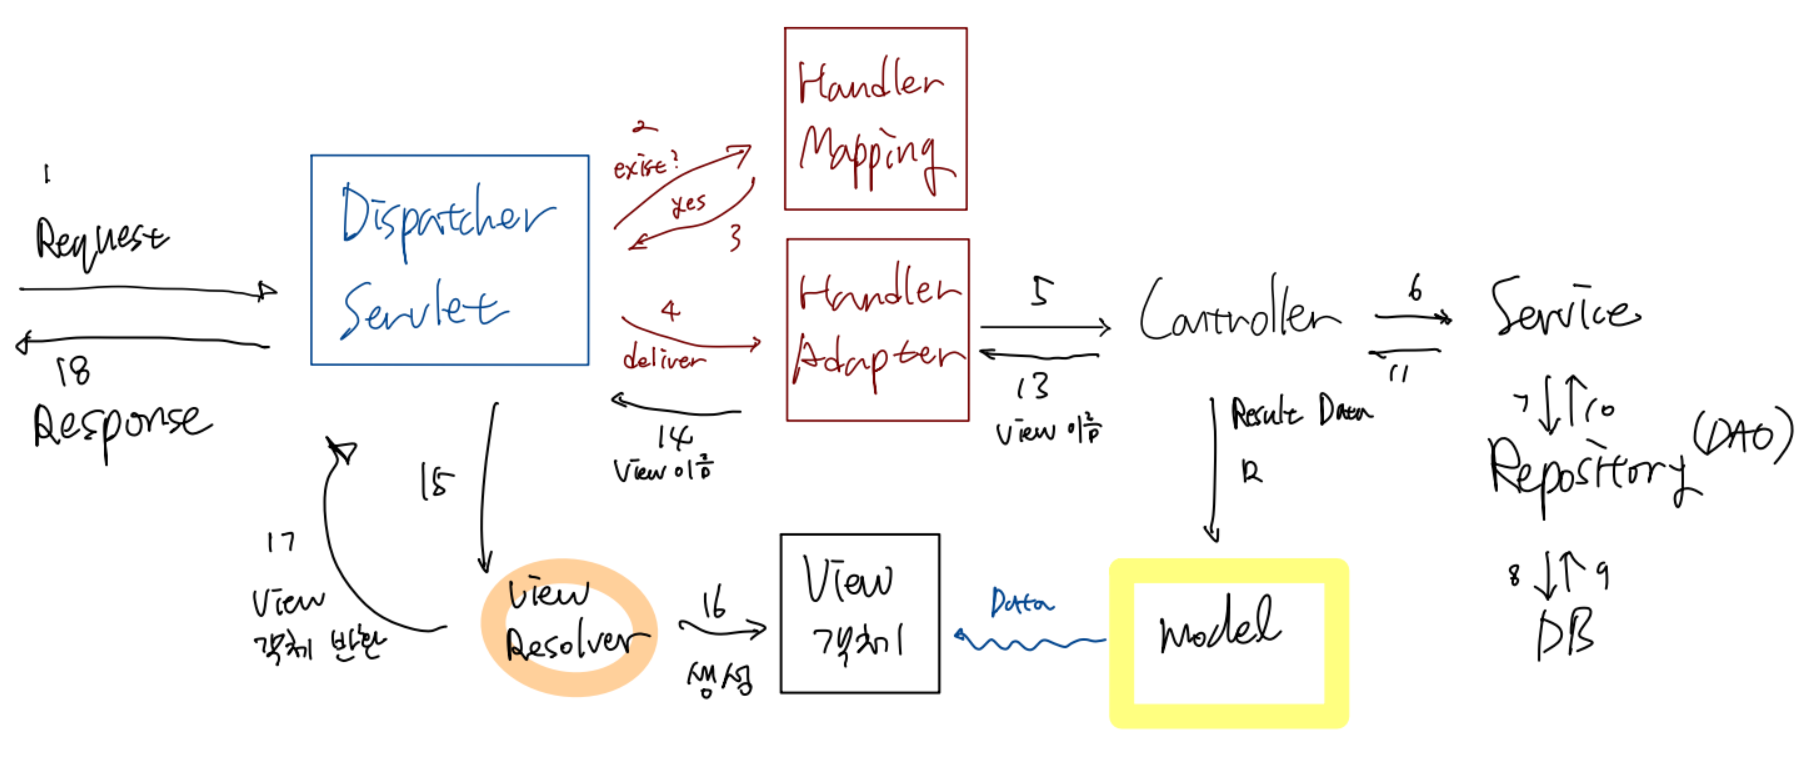 1
Request
18
Response
Dispatcher
Servlet
2
exist?
yes
3
Handler
Mapping
4
deliver
Handler
Adapter
14
View 이름
5
13
View 이름
Controller
6
11
Service
7
10
Repository
(DAO)
8
9
DB
Result Data
12
15
17
View
객체 반환
View
Resolver
16
생성
View
객체
Data
Model